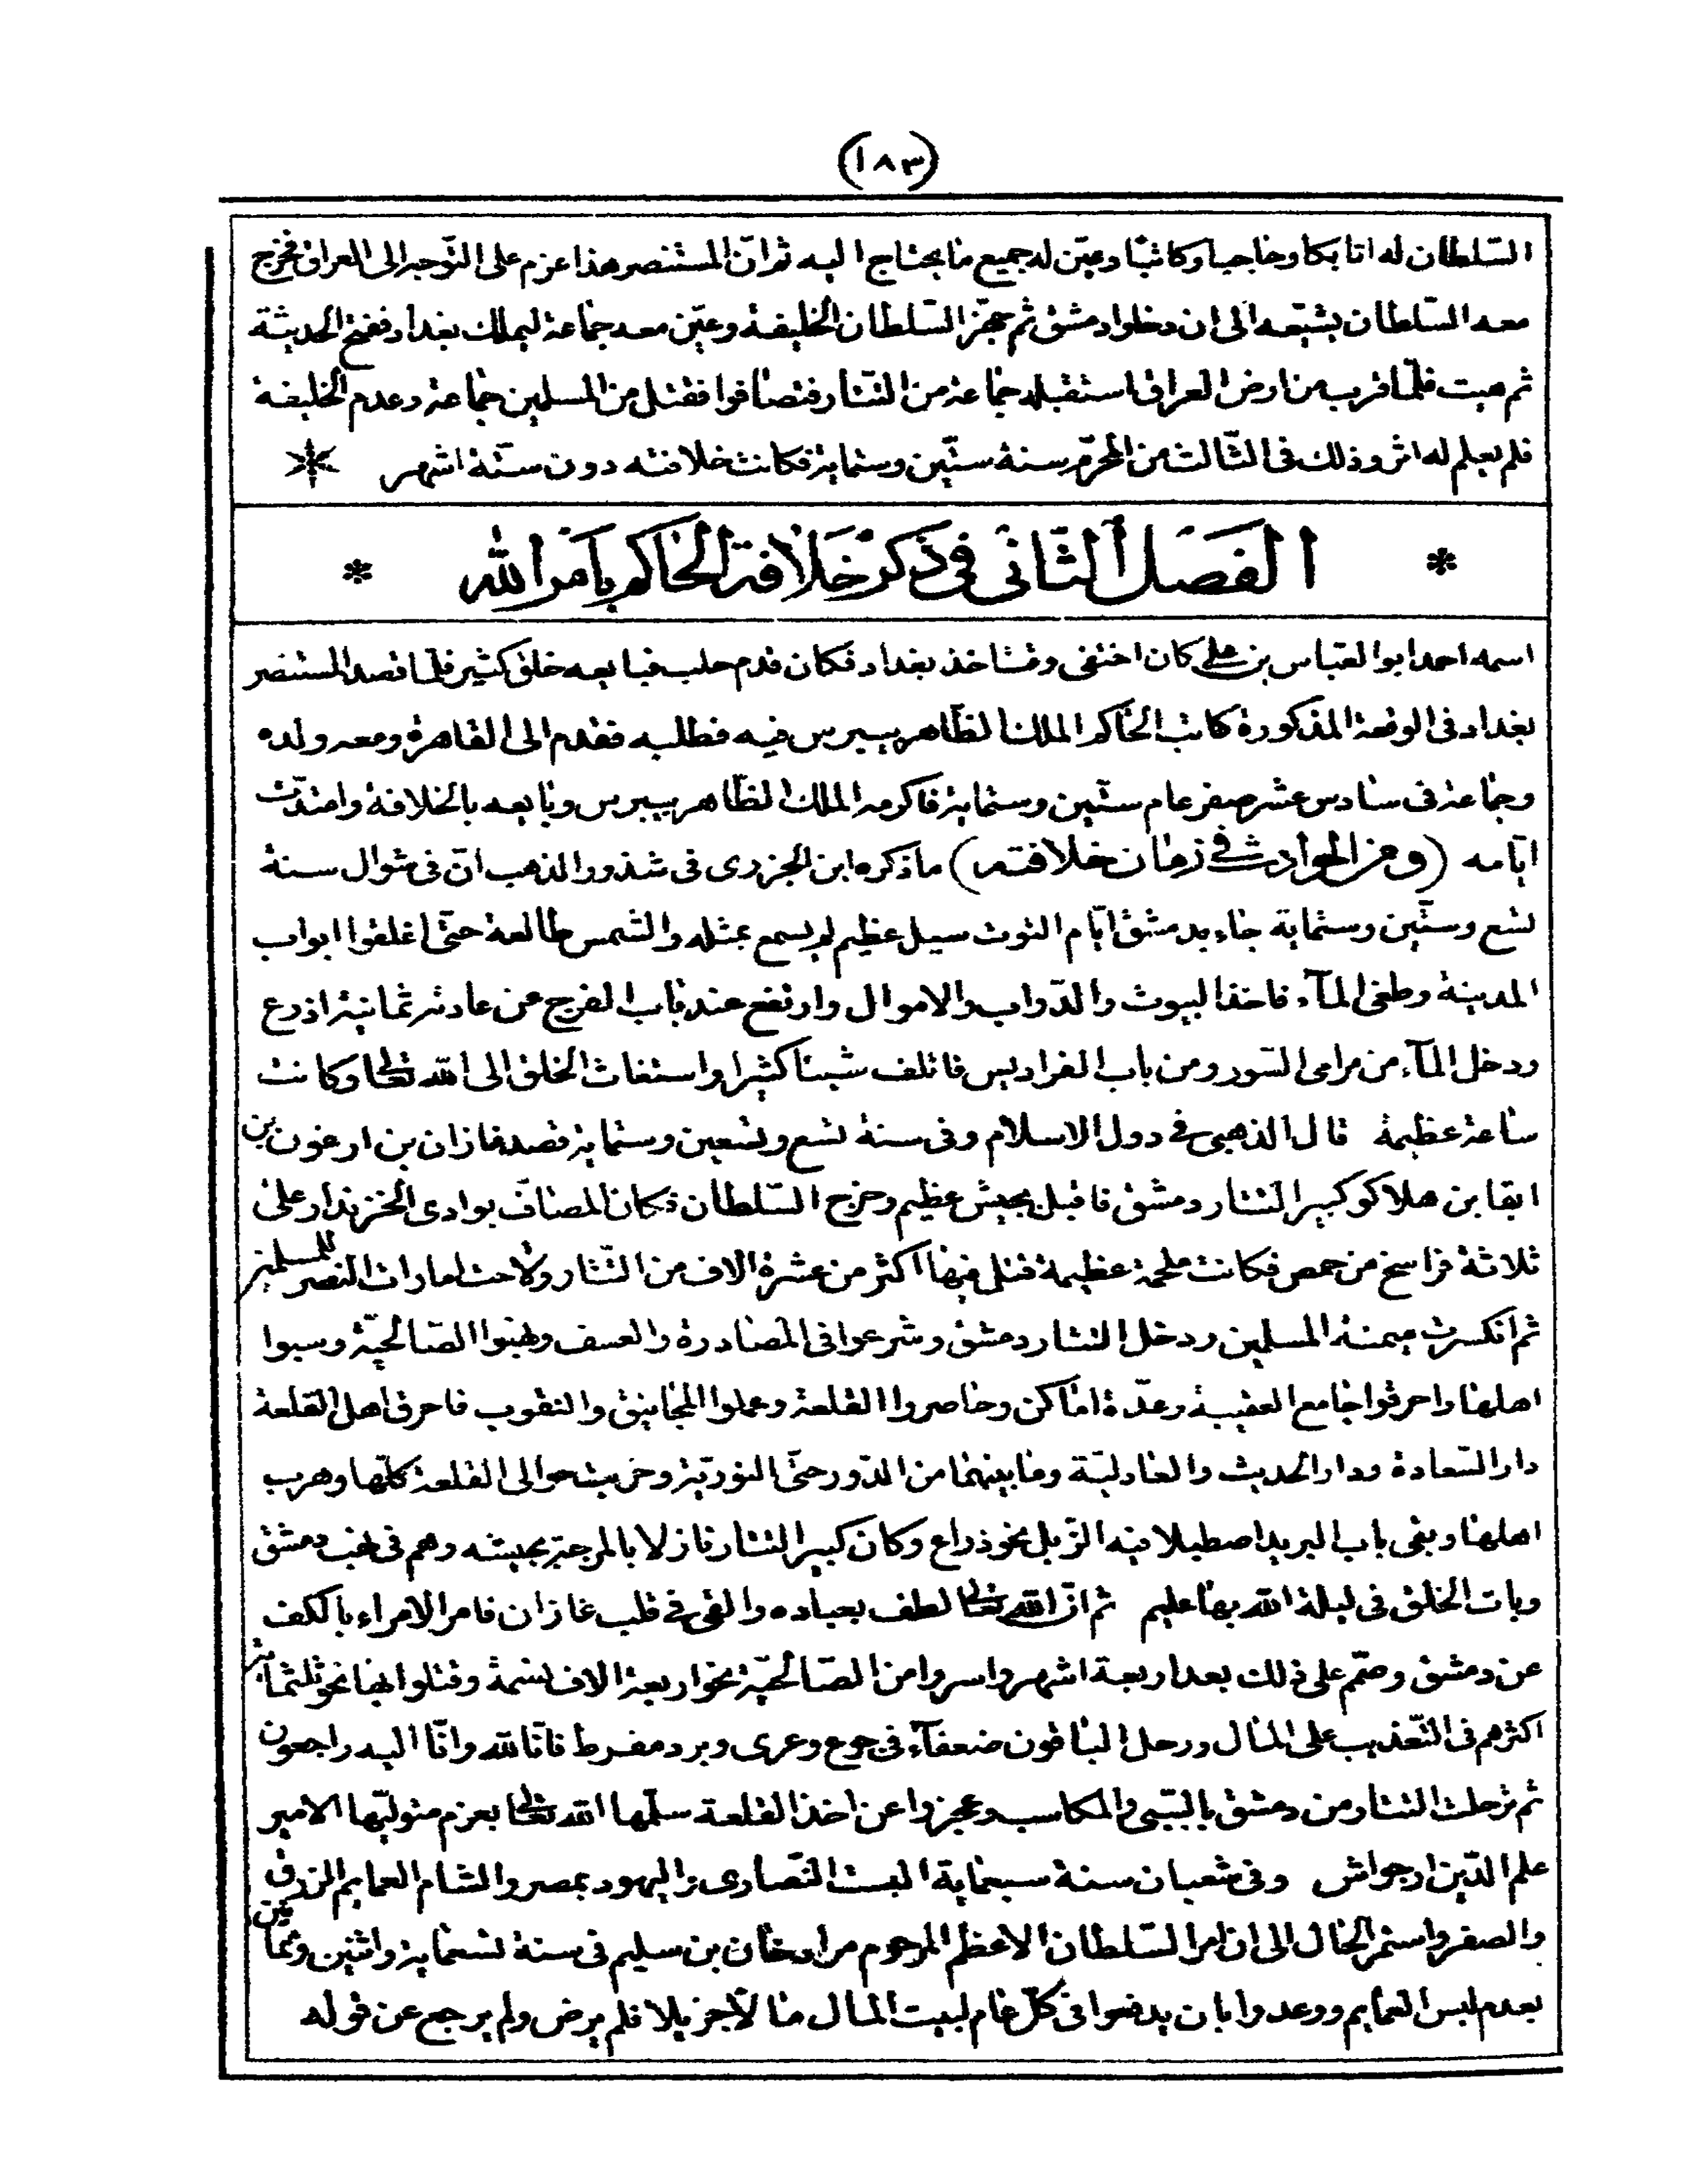 (١٨٣)
السّلطان له اتابكا وحاجبا وكاتبًا وعيّن له جميع ما يحتاج اليه ثم انّ المستنصر هذا عزم على التّوجه الى العراق فخرج
معه السّلطان يشيّعه الى ان دخلوا دمشق ثم جهّز السّلطان الخليفة وعيّن معه جماعة ليملك بغداد ففتح الحديثة
ثم هيت فلمّا قرب من ارض العراق استقبله جماعة من التتار فتصافوا فقتل من المسلمين جماعة وعدم الخليفة
فلم يعلم له اثر وذلك فى الثّالث من المحرّم سنة ستّين وستماية فكانت خلافته دون ستّة اشهر *
* الفصل الثّانى فى ذكر خلافة الحاكم بامر الله *
اسمه احمد ابو العباس بن على كان اختفى وقت اخذ بغداد فكان قدم حلب فبايعه خلق كثير فلمّا قصد المستنصر
بغداد فى الوقعة المذكورة كاتب الحاكم الملك الظّاهر بيبرس فيه فطلبه فقدم الى القاهرة ومعه ولده
وجماعة فى سادس عشر صفر عام ستّين وستماية فاكرمه الملك الظّاهر بيبرس وبايعه بالخلافة وامتدّت
ايّامه (ومن الحوادث فى زمان خلافته) ماذكره ابن الجزرى فى شذور الذهب انّ فى شوال سنة
تسع وستّين وستماية جاء بدمشق ايّام التوت سيل عظيم لم يسمع بمثله والشمس طالعة حتّى اغلقوا ابواب
المدينة وطغى المآء فاخذ البيوت والدّواب والاموال وارتفع عند باب الفرج عن عادته ثمانية اذرع
ودخل المآء من مرامى السّور ومن باب الفراديس فاتلف شيئا كثيرا واستغاث الخلق الى الله تعالى وكانت
ساعة عظيمة قال الذهبى فى دول الاسلام وفى سنة تسع وتسعين وستماية قصد غازان بن ارغون بن
ابقا بن هلاكو كبير التتار دمشق فاقبل بجيش عظيم وخرج السّلطان فكان المصافّ بوادى الخزندار على
ثلاثة فراسخ من حمص فكانت ملحمة عظيمة قتل فيها اكثر من عشرة الاف من التّتار ولاحت امارات النصر للمسلمين
ثم انكسرت ميمنة المسلمين ودخل التتار دمشق وشرعوا فى المصادرة والعسف ونهبوا الصّالحيّة وسبوا
اهلها واحرقوا جامع العقيبة وعدّة اماكن وحاصروا القلعة وعملوا المجانيق والنقوب فاحرق اهل القلعة
دار السّعادة ودار الحديث والعادليّة وما بينهما من الدّور حتّى النوريّة وخى بيتحوالى القلعة كلّها وهرب
اهلها وبقى باب البريد اصطبلا فيه الزّبل نحو ذراع وكان كبير التتار نازلا بالمرجة بجيشه وهم فى نهب دمشق
وبات الخلق فى ليلة الله بها عليم ثم انّ الله تعالى لطف بعباده والقى فى قلب غازان فامر الامراء بالكف
عن دمشق وصمّم على ذلك بعد اربعة اشهر واسروا من الصّالحيّة نحو اربعة الاف نسمة وقتلوا بها نحو ثلثماية
اكثرهم فى التّعذيب على المال ورحل الباقون ضعفآء فى جوع وعرى وبرد مفرط فانّا لله وانّا اليه راجعون
ثم ترحلت التتار من دمشق بالسّبى والمكاسب وعجزوا عن اخذ القلعة سلّمها الله تعالى بعزم متوليّها الامير
علم الدّين ارجواش وفى شعبان سنة سبعماية البست النّصارى واليهود بمصر والشام العمايم الزرق
والصفر واستمر الحال الى ان امر السّلطان الاعظم المرحوم مراد خان بن سليم فى سنة تسعماية واثنين وثمانين
بعدم لبس العمايم ووعدوا بان يدفعوا فى كلّ عام لبيت المال مالا جزيلا فلم يرض ولم يرجع عن قوله